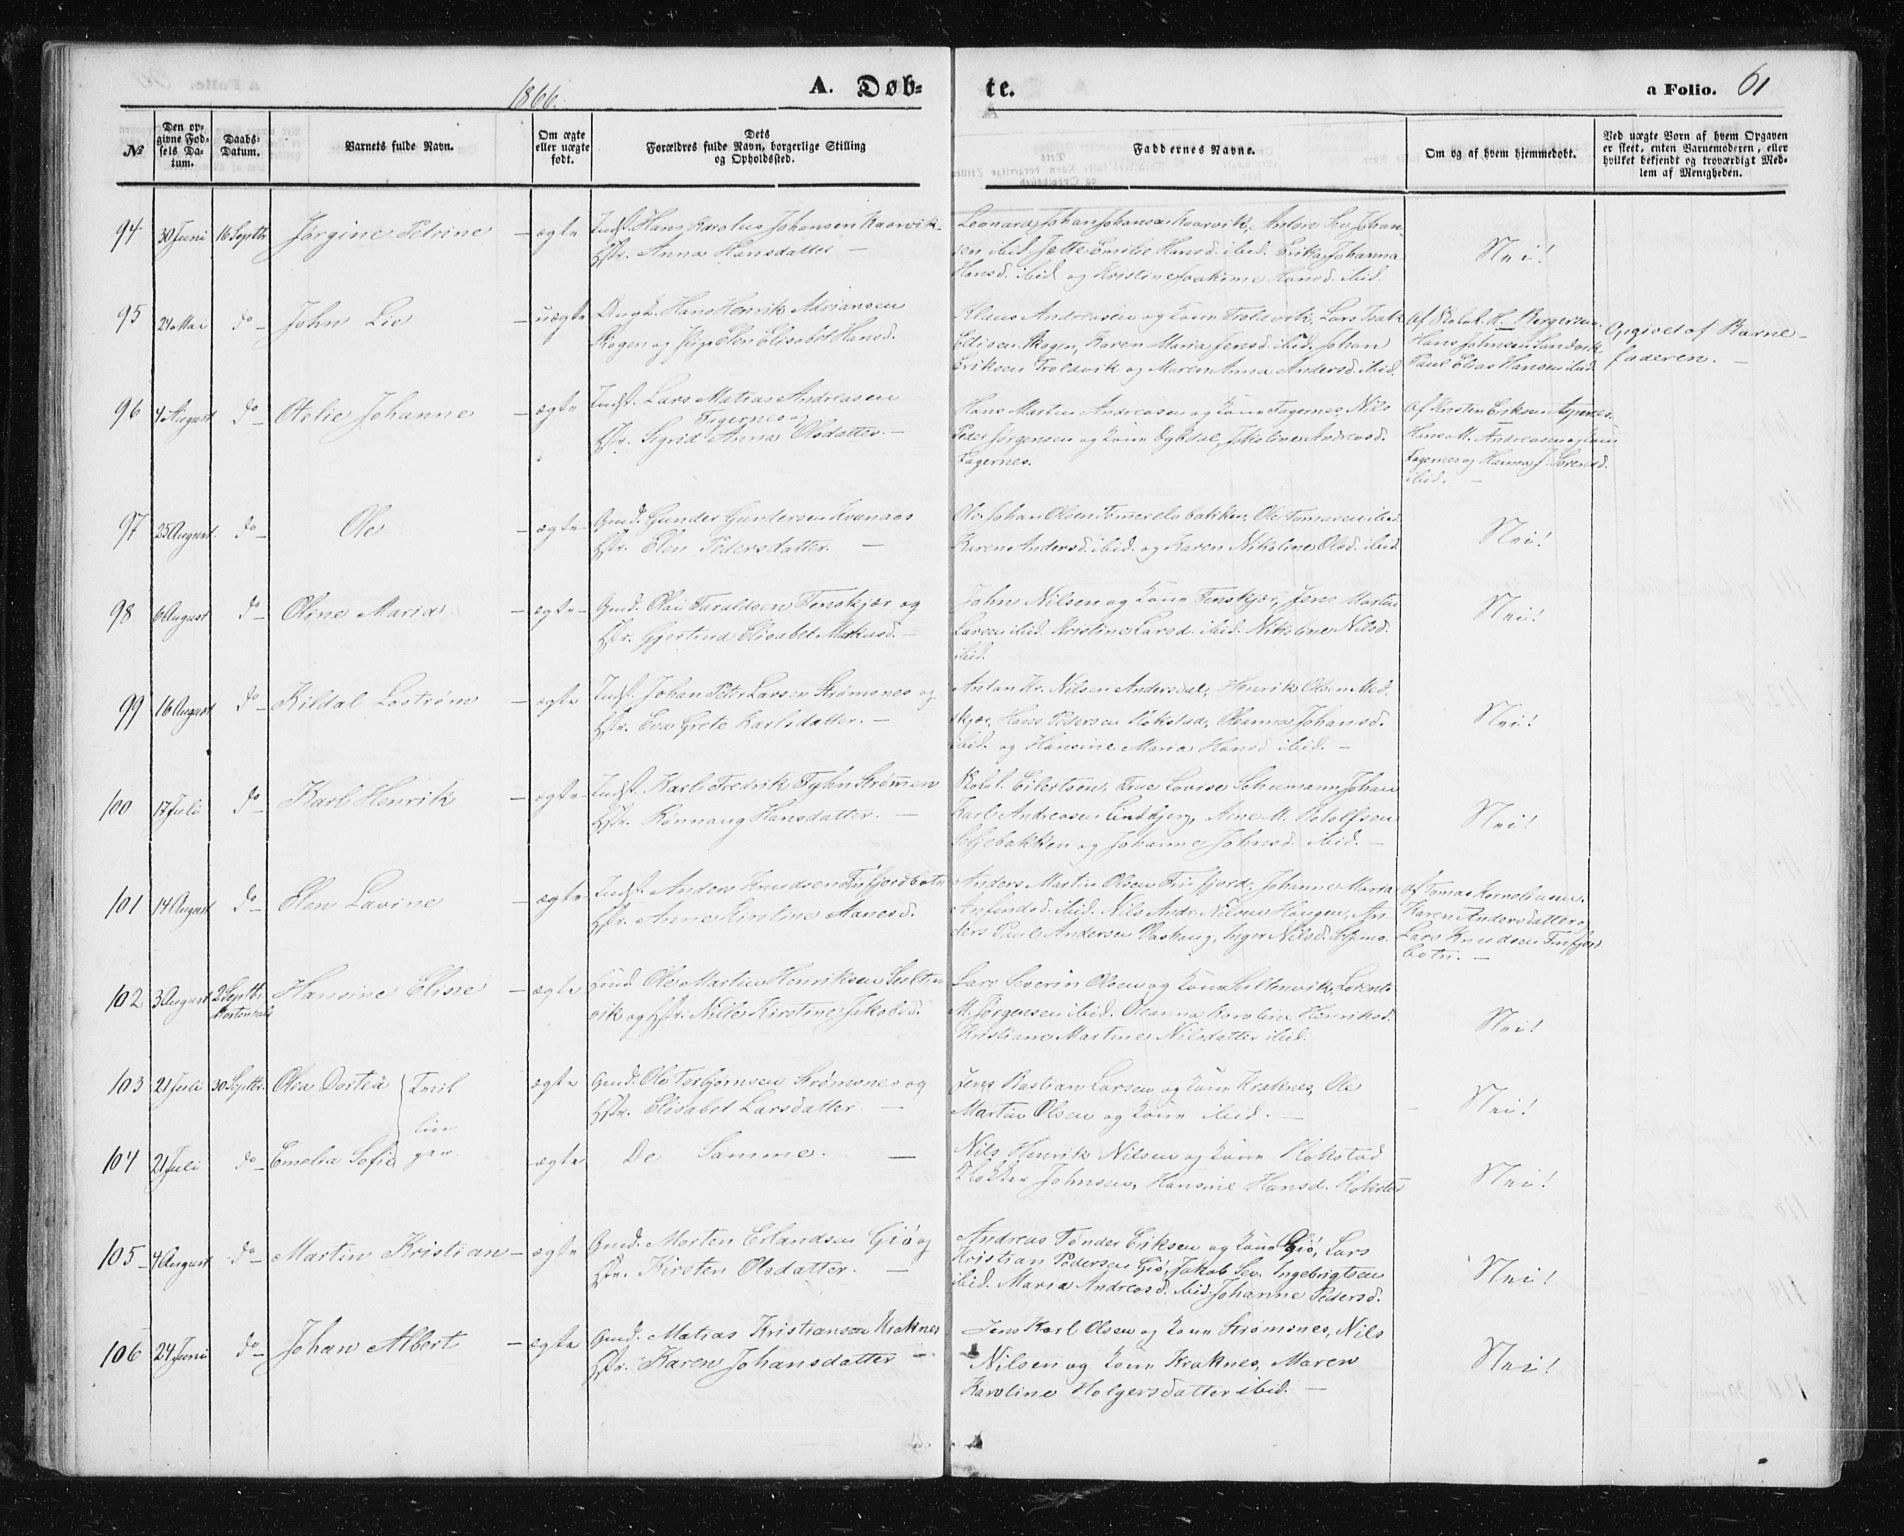 1866.
A. Døb-
te.
a Folio. 61
№
Den op-
givne Fød-
sels Da-
tum.
Daabs-
Datum.
Barnets fulde Navn.
Om ægte
eller uægte
født.
Dets
Forældres fulde Navn, borgerlige Stilling
og Opholdssted.
Faddernes Navne.
Om og af hvem hjemmedøbt.
Ved uægte Børn af hvem Opgaven
er skeet, enten Barnemoderen, eller
hvilket bekjendt og troværdigt Med-
lem af Menigheden.
94 30 Juni 16 Septbr Jørgine Petrine - ægte Indst. Hans Karolus Johansen Kaarvik
Hstr. Anna Hansdatter —
Leonard Johan Johansen Kaarvik, Anton Johan-
sen ibid. Jette Emilie Hansd. ibid. Erika Johanna
Hansd. ibid og Kristine Joakime Hansd. ibid.
Nei!
95 24 Mai do - John Lie - uægte Ungk. Hans Henrik Adriansen
Skogen og Pige Elen Elisabet Hansd.
Klaus Andreasen og Kone Troldvik, Lars Isak
Edisen Skogen, Karen Maria Jensd. ibid. Johan
Eriksen Troldvik og Maren Anna Andersd. ibid.
Af Skolel. H. Bergersen
Hans Johnsen Sandvik
Paul Elias Hansen ibid.
Opgivet af Barne-
faderen. —
96 4 August do - Otelie Johanne - ægte Indst. Lars Matias Andreasen
Fagernes og
Hstr. Sigrid Anna Olsdatter. —
Hans Martin Andreasen og Kone Fagernes, Nils
Peder Jørgensen og Kone, Jakoline Andreasd.
Fagernes.
Af Kristen Eriksen
Hans M. Andreasen og Kone
Fagernes og Hanna J. Sørensd.
ibid. —
97 25 August do - Ole - ægte - Gmd. Gunder Gundersen Kvanaas
Hstr. Elen Pedersdatter. —
Ole Johan Olsen Tømmerelvbakken, Ole Tomassen ibid.
Karen Andersd. ibid. og Karen Nikoline Olsd. ibid
Nei!
98 6 August do - Oline Maria - ægte - Gmd. Olai Taraldsen Tenskjær og
Hstr. Gjertrud Elisabet Markusd. —
John Nilsen og Kone Tenskjær, Jens Martin
Larsen ibid. Kristine Larsd. ibid. Nikoline Nilsd.
ibid.
Nei!
99 16 August do - Kildal Lostrøm - ægte Indst. Johan Peter Larsen Strømsnes og
Hstr. Eva Grete Karlsdatter. —
Anton Kr. Nilsen Andersdal, Henrik Olsen Med-
skjær, Hans Pedersen Rokstad, Oleanna Johansd.
ibid. og Hansine Maria Hansd. ibid. —
Nei!
100 17 Juli do - Karl Henrik - ægte - Indst. Karl Fredrik Fyhn Strømmen
Hstr. Rønnaug Hansdatter. —
Skolel. Eilertsen, Frue Lovise Schumann, Johan
Karl Andreasen Lindbjerg, Arne M. Rolofsen
Seljebakken og Johanne Johnsd. ibid. —
Nei!
101 14 August do - Elen Lavine - ægte Indst. Anders Knudsen Finfjordbotn
Hstr. Anne Kirstine Aaresd.
Anders Martin Olsen Finfjord, Johanne Maria
Arfindsd. ibid. Nils Andr. Nilsen Haugen, An-
ders Paul Andersen Vaskaug, Inger Nilsd.
Af Tomas Kornelius en
Karen Andersdatter og
Lars Knudsen Finfjord
botn. —
102 3 August 2 Septbr. Hansine Eline - ægte Gmd. Ole Martin Henriksen Sultin-
vik og Hstr. Nille Kirstine Jakobsd.
Mortensals
Lars Severin Olsen og Kone Sultinvik, Lorents
M. Jørgensen ibid. Oleanna Karoline Henriksd.
Kristiane Martine Nilsdatter ibid.
Nei!
103 21 Juli 30 Septbr. Olea Dortea Tvil ægte Gmd. Ole Torbjørnsen Strømsnes og
lin
Hstr. Elisabet Larsdatter. —
Jens Bastian Larsen og Kone Kraknes, Ole
Martin Olsen og Kone ibid. —
Nei!
104 21 Juli do - Emelia Sofie ger - ægte De Samme. —
Nils Henrik Nilsen og Kone Rokstad
Klokker Johnsen, Hansine Hansd. Rokstad
Nei!
105 - 4 August do - Martin Kristian - ægte Gmd. Morten Erlandsen Giø og
Hstr. Kirsten Olsdatter. —
Andreas Tønder Eriksen og Kone Giø, Lars
Kristian Pedersen Giø, Jakob Sev. Ingebrigtsen
ibid. Maria Andreasd. ibid, Johanne Pedersd.
Nei!
106 24 Juni do - Johan Albert - ægte Gmd. Matias Kristiansen Kraknes
Hstr. Karen Johansdatter —
Jens Karl Olsen og Kone Strømsnes, Nils
Nilsen og Kone Kraknes, Maren
Karoline Holgersdatter ibid. —
Nei!